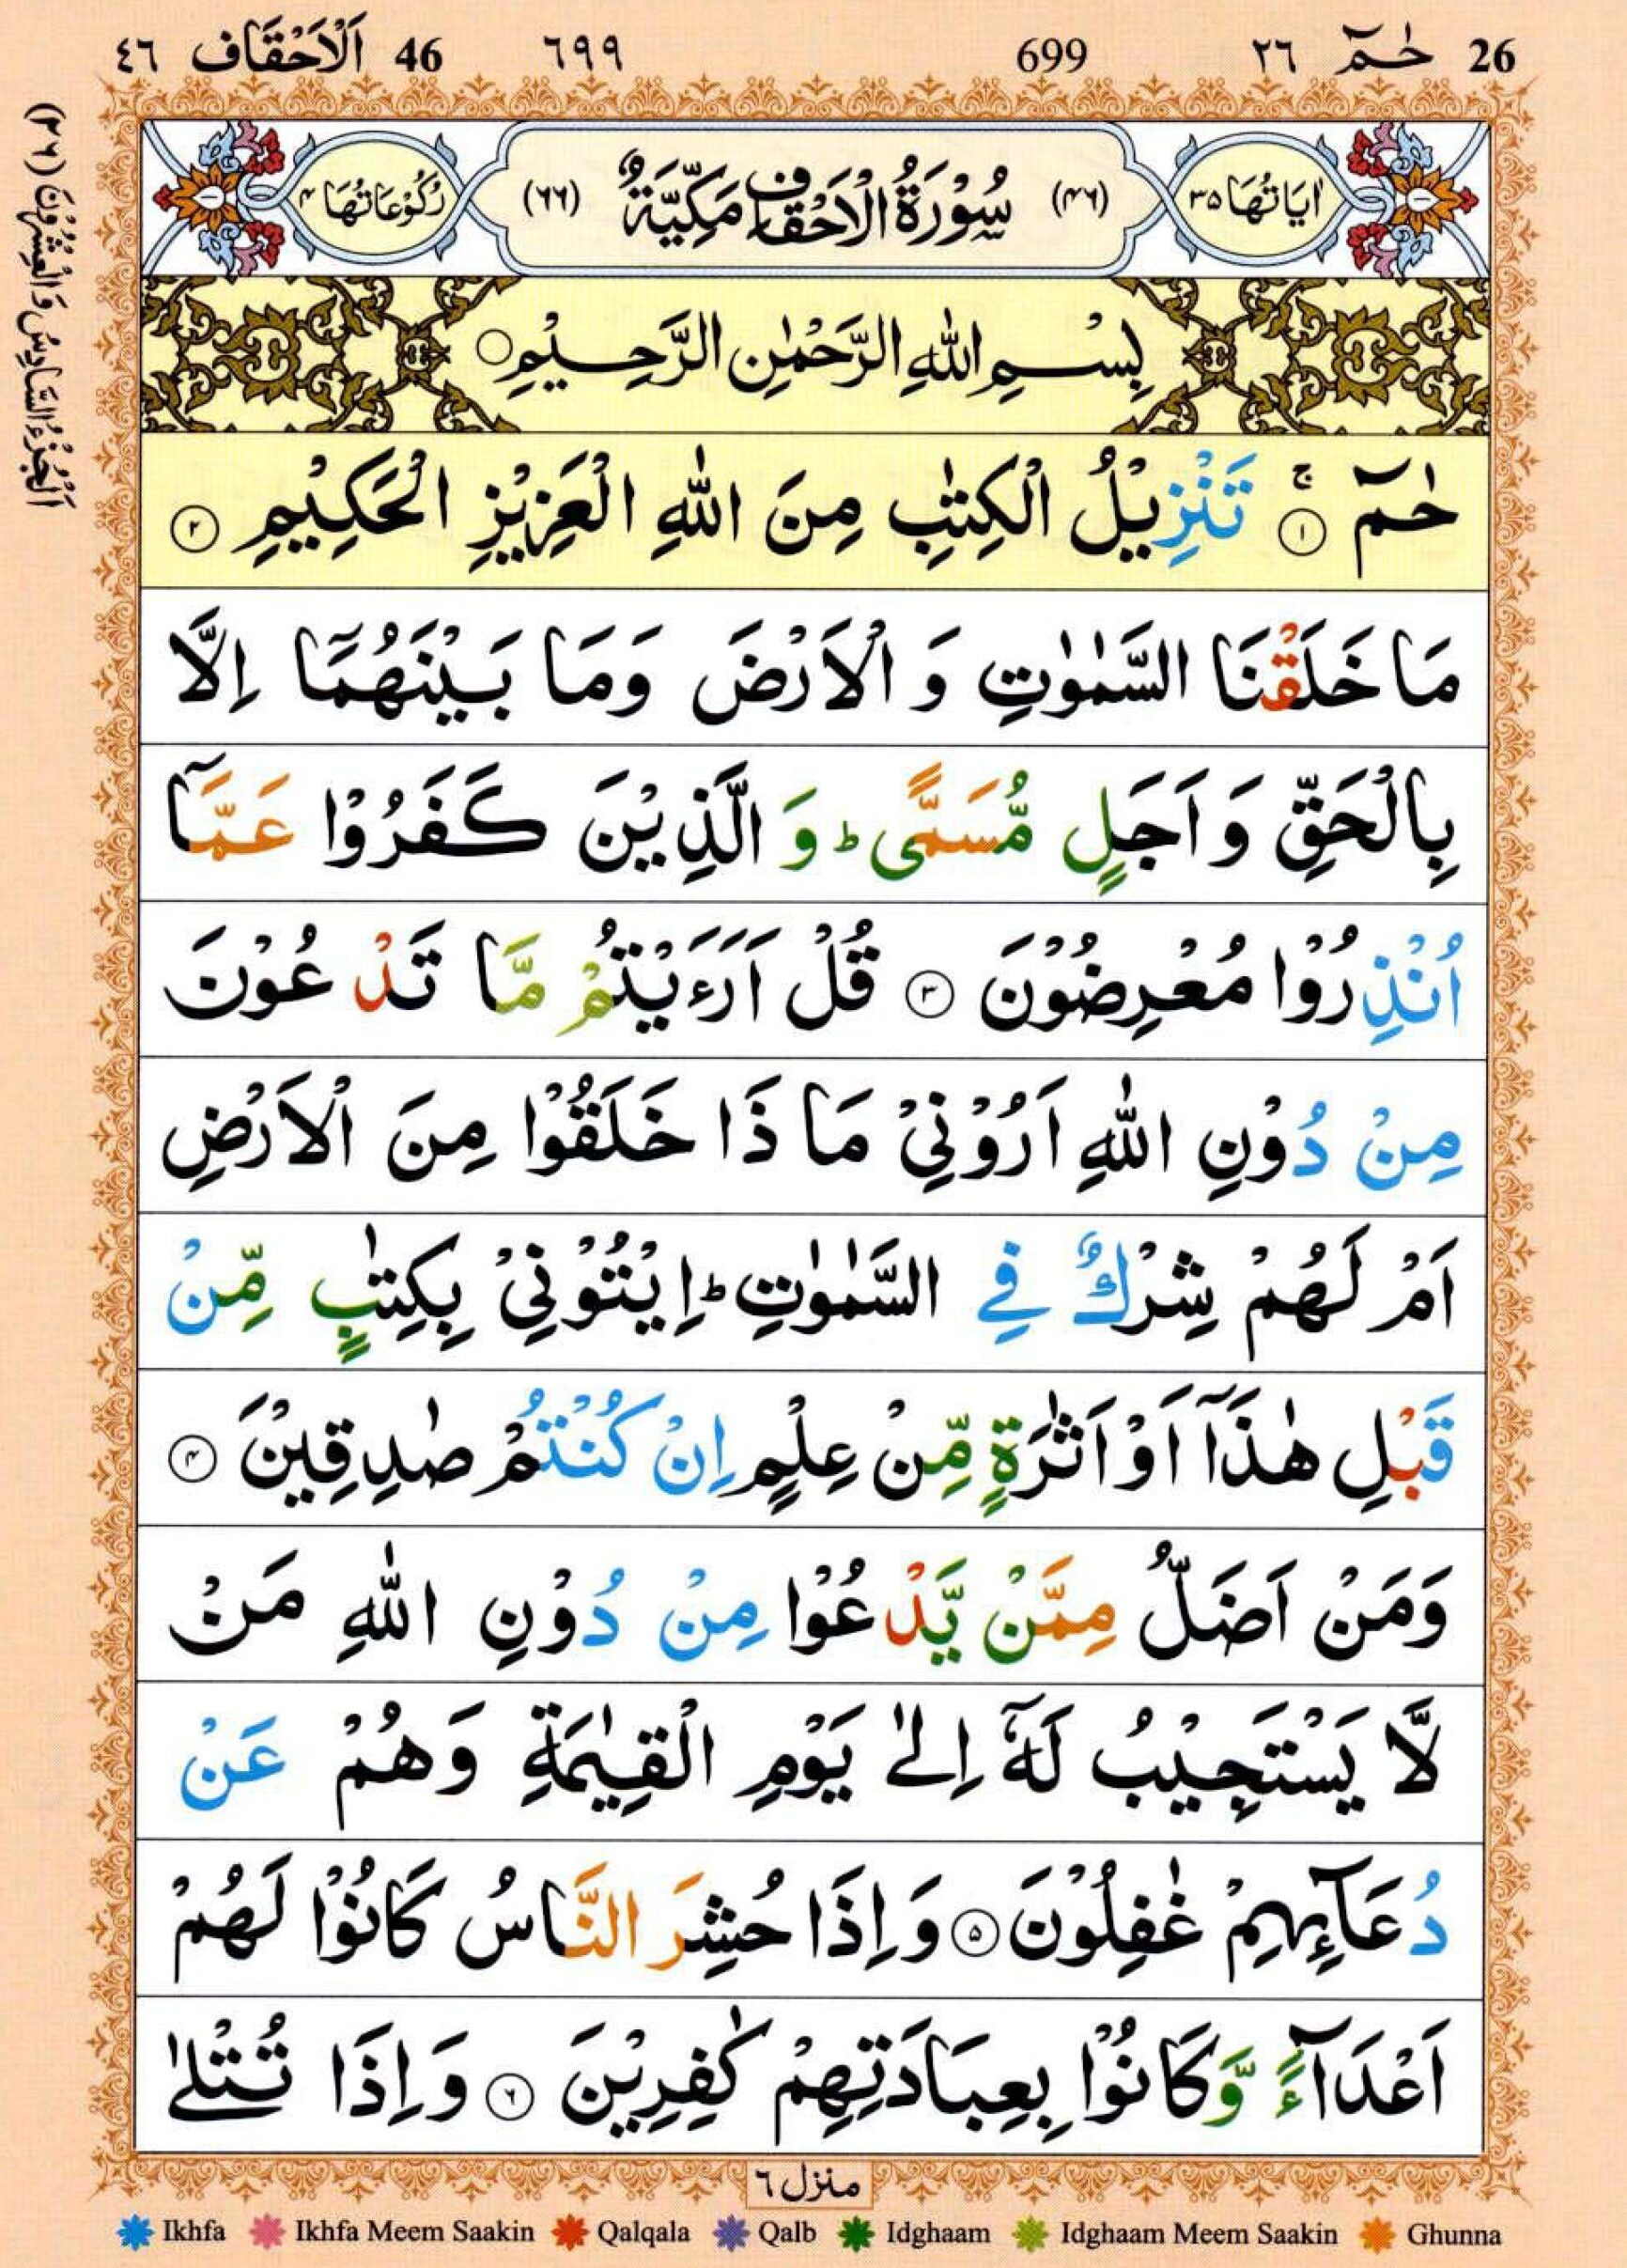 26 حٰمٓ ٢٦ 699 ٦٩٩ 46 اَلْاَحْقَاف ٤٦
اَلْجُزْءُ السَّادِسُ وَالْعِشْرُوْنَ (٢٦)
اٰيَاتُهَا ٣٥ (٤٦) سُوْرَةُ الْاَحْقَافِ مَكِّيَّةٌ (٦٦) رُكُوْعَاتُهَا ٤
بِسْمِ اللّٰهِ الرَّحْمٰنِ الرَّحِيْمِ
حٰمٓ ۚ ١ تَنْزِيْلُ الْكِتٰبِ مِنَ اللّٰهِ الْعَزِيْزِ الْحَكِيْمِ ٢
مَا خَلَقْنَا السَّمٰوٰتِ وَ الْاَرْضَ وَمَا بَيْنَهُمَاۤ اِلَّا
بِالْحَقِّ وَ اَجَلٍ مُّسَمًّى ؕ وَ الَّذِيْنَ كَفَرُوْا عَمَّاۤ
اُنْذِرُوْا مُعْرِضُوْنَ ٣ قُلْ اَرَءَيْتُمْ مَّا تَدْعُوْنَ
مِنْ دُوْنِ اللّٰهِ اَرُوْنِيْ مَا ذَا خَلَقُوْا مِنَ الْاَرْضِ
اَمْ لَهُمْ شِرْكٌ فِي السَّمٰوٰتِ ؕ اِيْتُوْنِيْ بِكِتٰبٍ مِّنْ
قَبْلِ هٰذَاۤ اَوْ اَثٰرَةٍ مِّنْ عِلْمٍ اِنْ كُنْتُمْ صٰدِقِيْنَ ٤
وَمَنْ اَضَلُّ مِمَّنْ يَّدْعُوْا مِنْ دُوْنِ اللّٰهِ مَنْ
لَّا يَسْتَجِيْبُ لَهٗۤ اِلٰى يَوْمِ الْقِيٰمَةِ وَهُمْ عَنْ
دُعَآئِهِمْ غٰفِلُوْنَ ٥ وَ اِذَا حُشِرَ النَّاسُ كَانُوْا لَهُمْ
اَعْدَآءً وَّكَانُوْا بِعِبَادَتِهِمْ كٰفِرِيْنَ ٦ وَ اِذَا تُتْلٰى
منزل ٦
Ikhfa Ikhfa Meem Saakin Qalqala Qalb Idghaam Idghaam Meem Saakin Ghunna